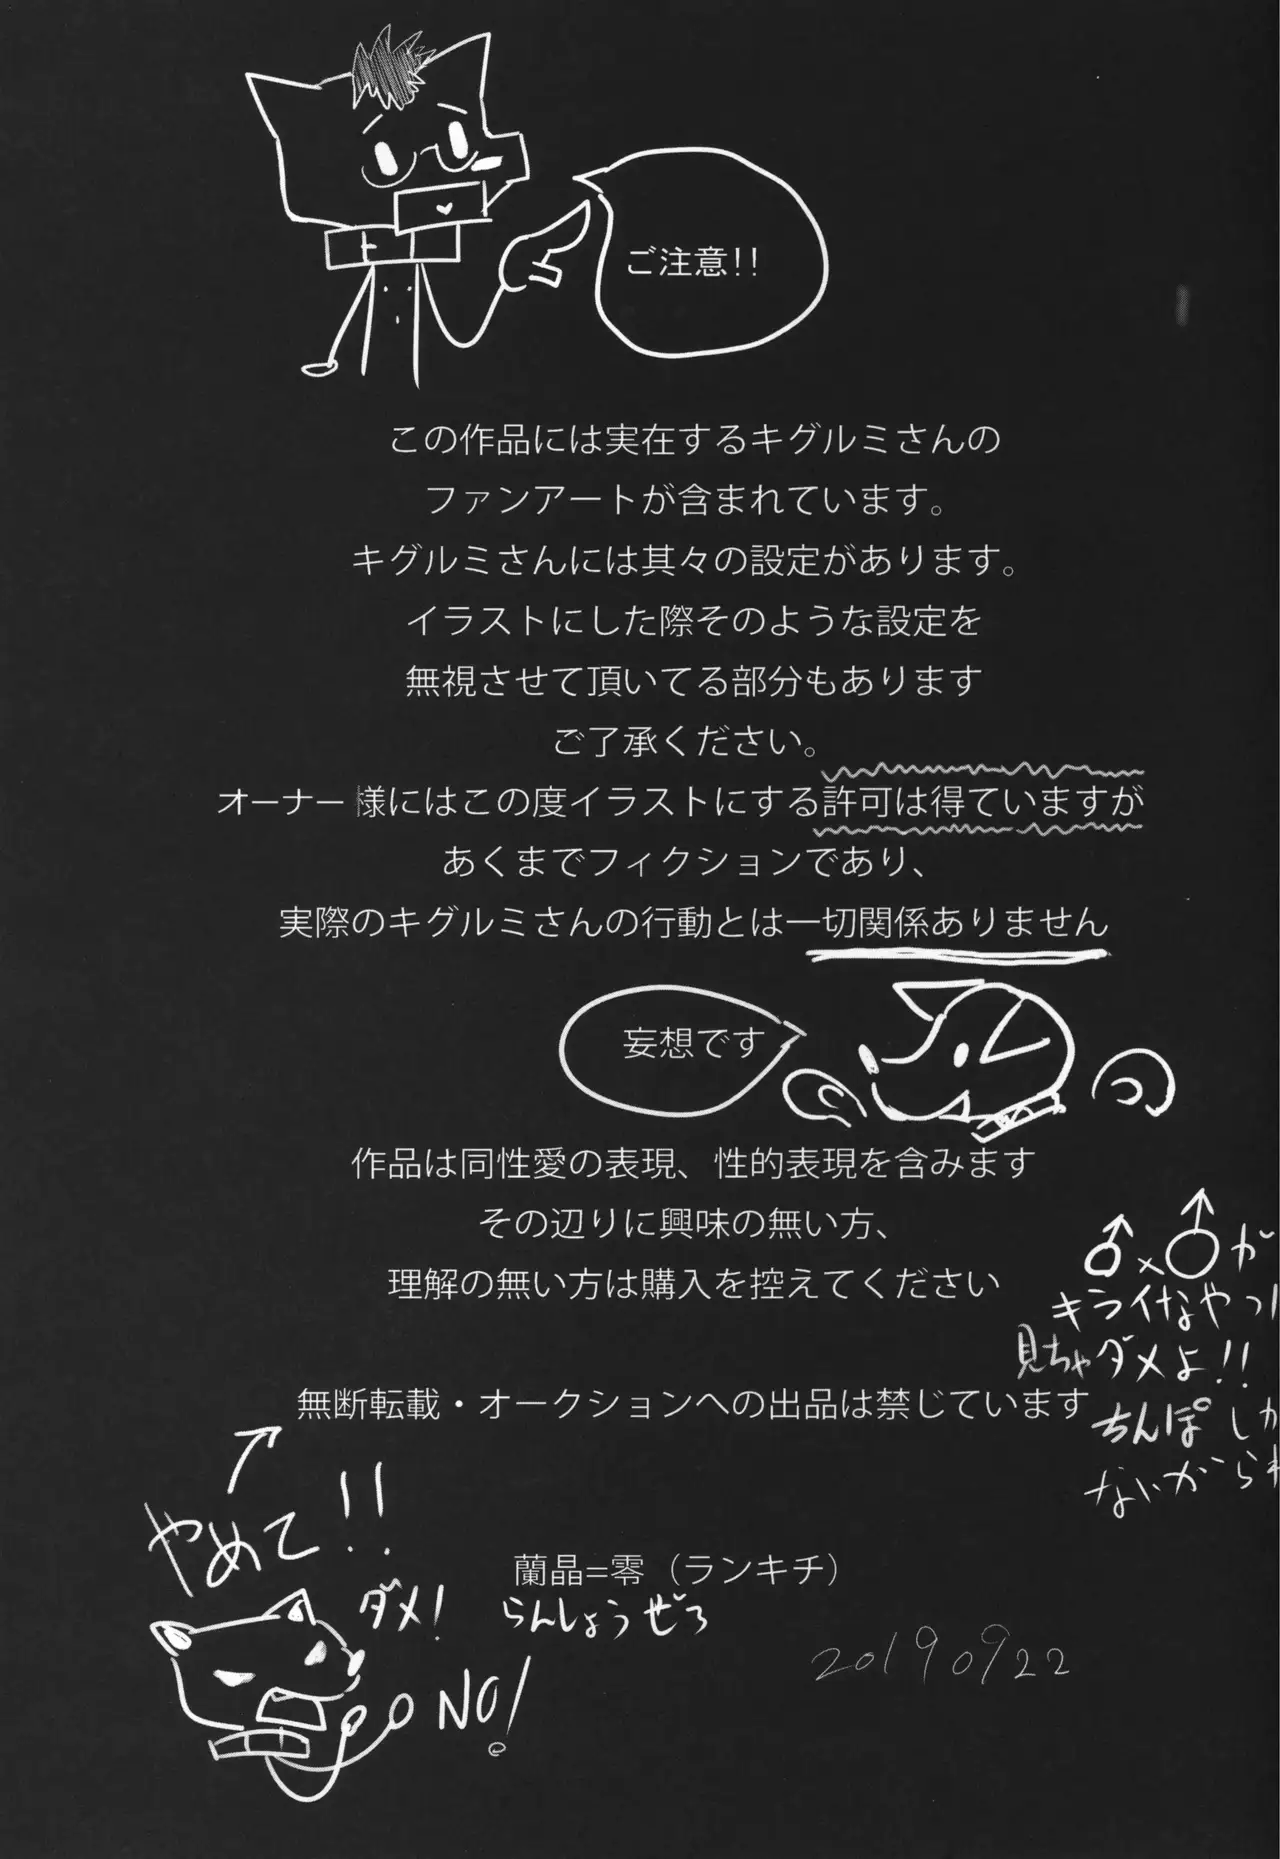 ご注意!!
上
この作品には実在するキグルミさんの
ファンアートが含まれています。
キグルミさんには其々の設定があります。
イラストにした際そのような設定を
無視させて頂いてる部分もあります
ご了承ください。
オーナー様にはこの度イラストにする許可は得ていますが
あくまでフィクションであり、
実際のキグルミさんの行動とは一切関係ありません
妄想です
作品は同性愛の表現、性的表現を含みます
その辺りに興味の無い方、
理解の無い方は購入を控えてください
♂×♂が
キライなやつ
見ちゃダメよ!!
ちんぽしか
ないから
無断転載・オークションへの出品は禁じています
やめて!!
ダメ!
NO!
蘭晶=零（ランキチ）
らんしょうぜろ
20190922